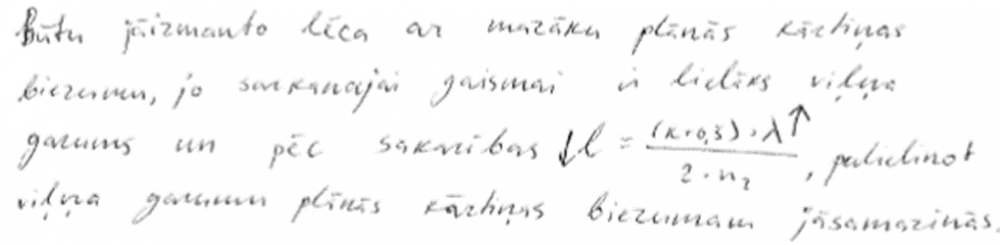 Būtu jāizmanto lēca ar mazāku plānās kārtiņas
biezumu, jo sarkanajai gaismai ir lielāks viļņa
garums un pēc sakarības ↓l = (k+0,5)·λ↑ / 2·n₂, palielinot
viļņa garumu plānās kārtiņas biezumam jāsamazinās.